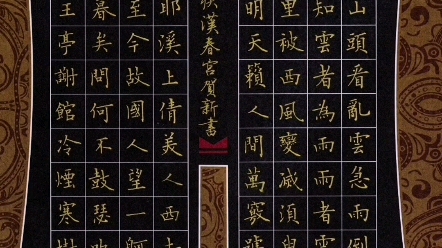 山頭看亂雲急雨倒
知雲者為雨雨者雲
里被西風變滅湏臾
明天籟人間萬竅號
漢春宮賀新書
耶溪上倩美人西去
至今故國人望一舸
暮矣問何不鼓瑟吹
王亭謝館冷煙寒樹